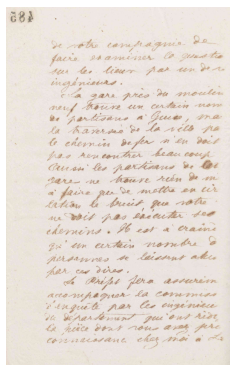 485
de votre compagnie de
faire examiner la questio
sur les lieux par un de v
ingénieurs.
La gare près du moulin
neuf trouve un certain nom
de partisans à mais
la traversée de la ville pa
le chemin de fer n'en doit
pas rencontrer beaucoup
les partisans de
gares ne trouve rien de m
à faire que de mettre en cir
lation le bruit que votre
ne doit pas exécuter ses
chemins. Il est à crain
qu'un certain nombre d
personnes se laissent abu
par ces dires.
Le Préfet fera assurém
accompagner la commiss
d'enquête par les ingénieu
du département qui ont réd
la pièce dont vous avez pri
connaissance chez moi à La